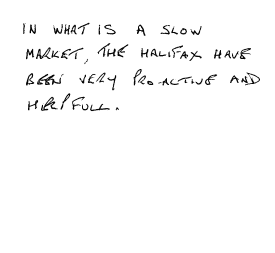 IN WHAT IS A SLOW
MARKET, THE HALIFAX HAVE
BEEN VERY PRO-ACTIVE AND
HELPFULL.